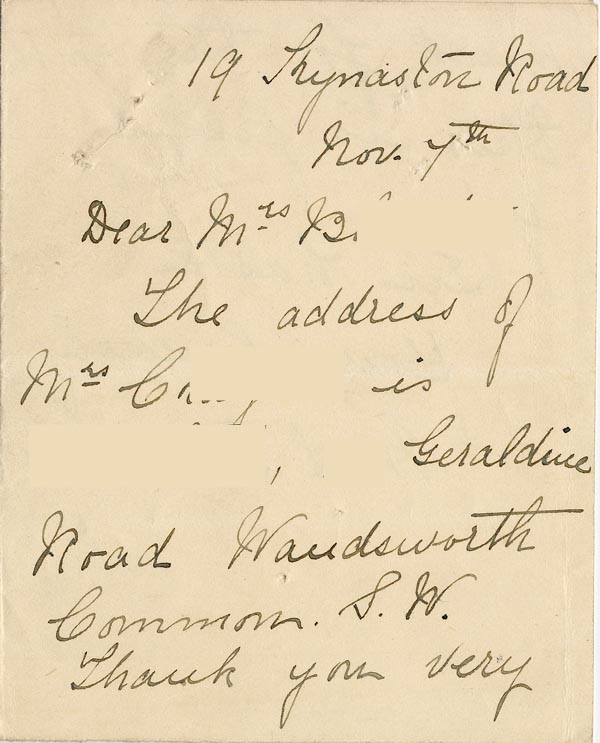 19 Kynaston Road
Nov. 7th
Dear Mrs B
The address of
Mrs is
Geraldine
Road Wandsworth
Common. S. W.
Thank you very